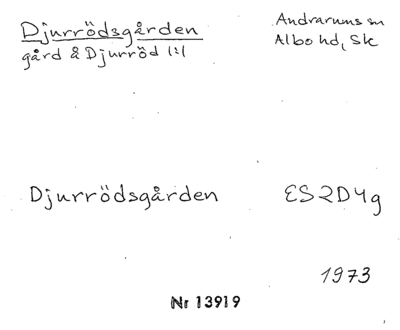 Djurrödsgården
gård å Djurröd 1:1
Andrarums sn
Albo hd, Sk
Djurrödsgården
ES2D4g
1973
Nr 13919